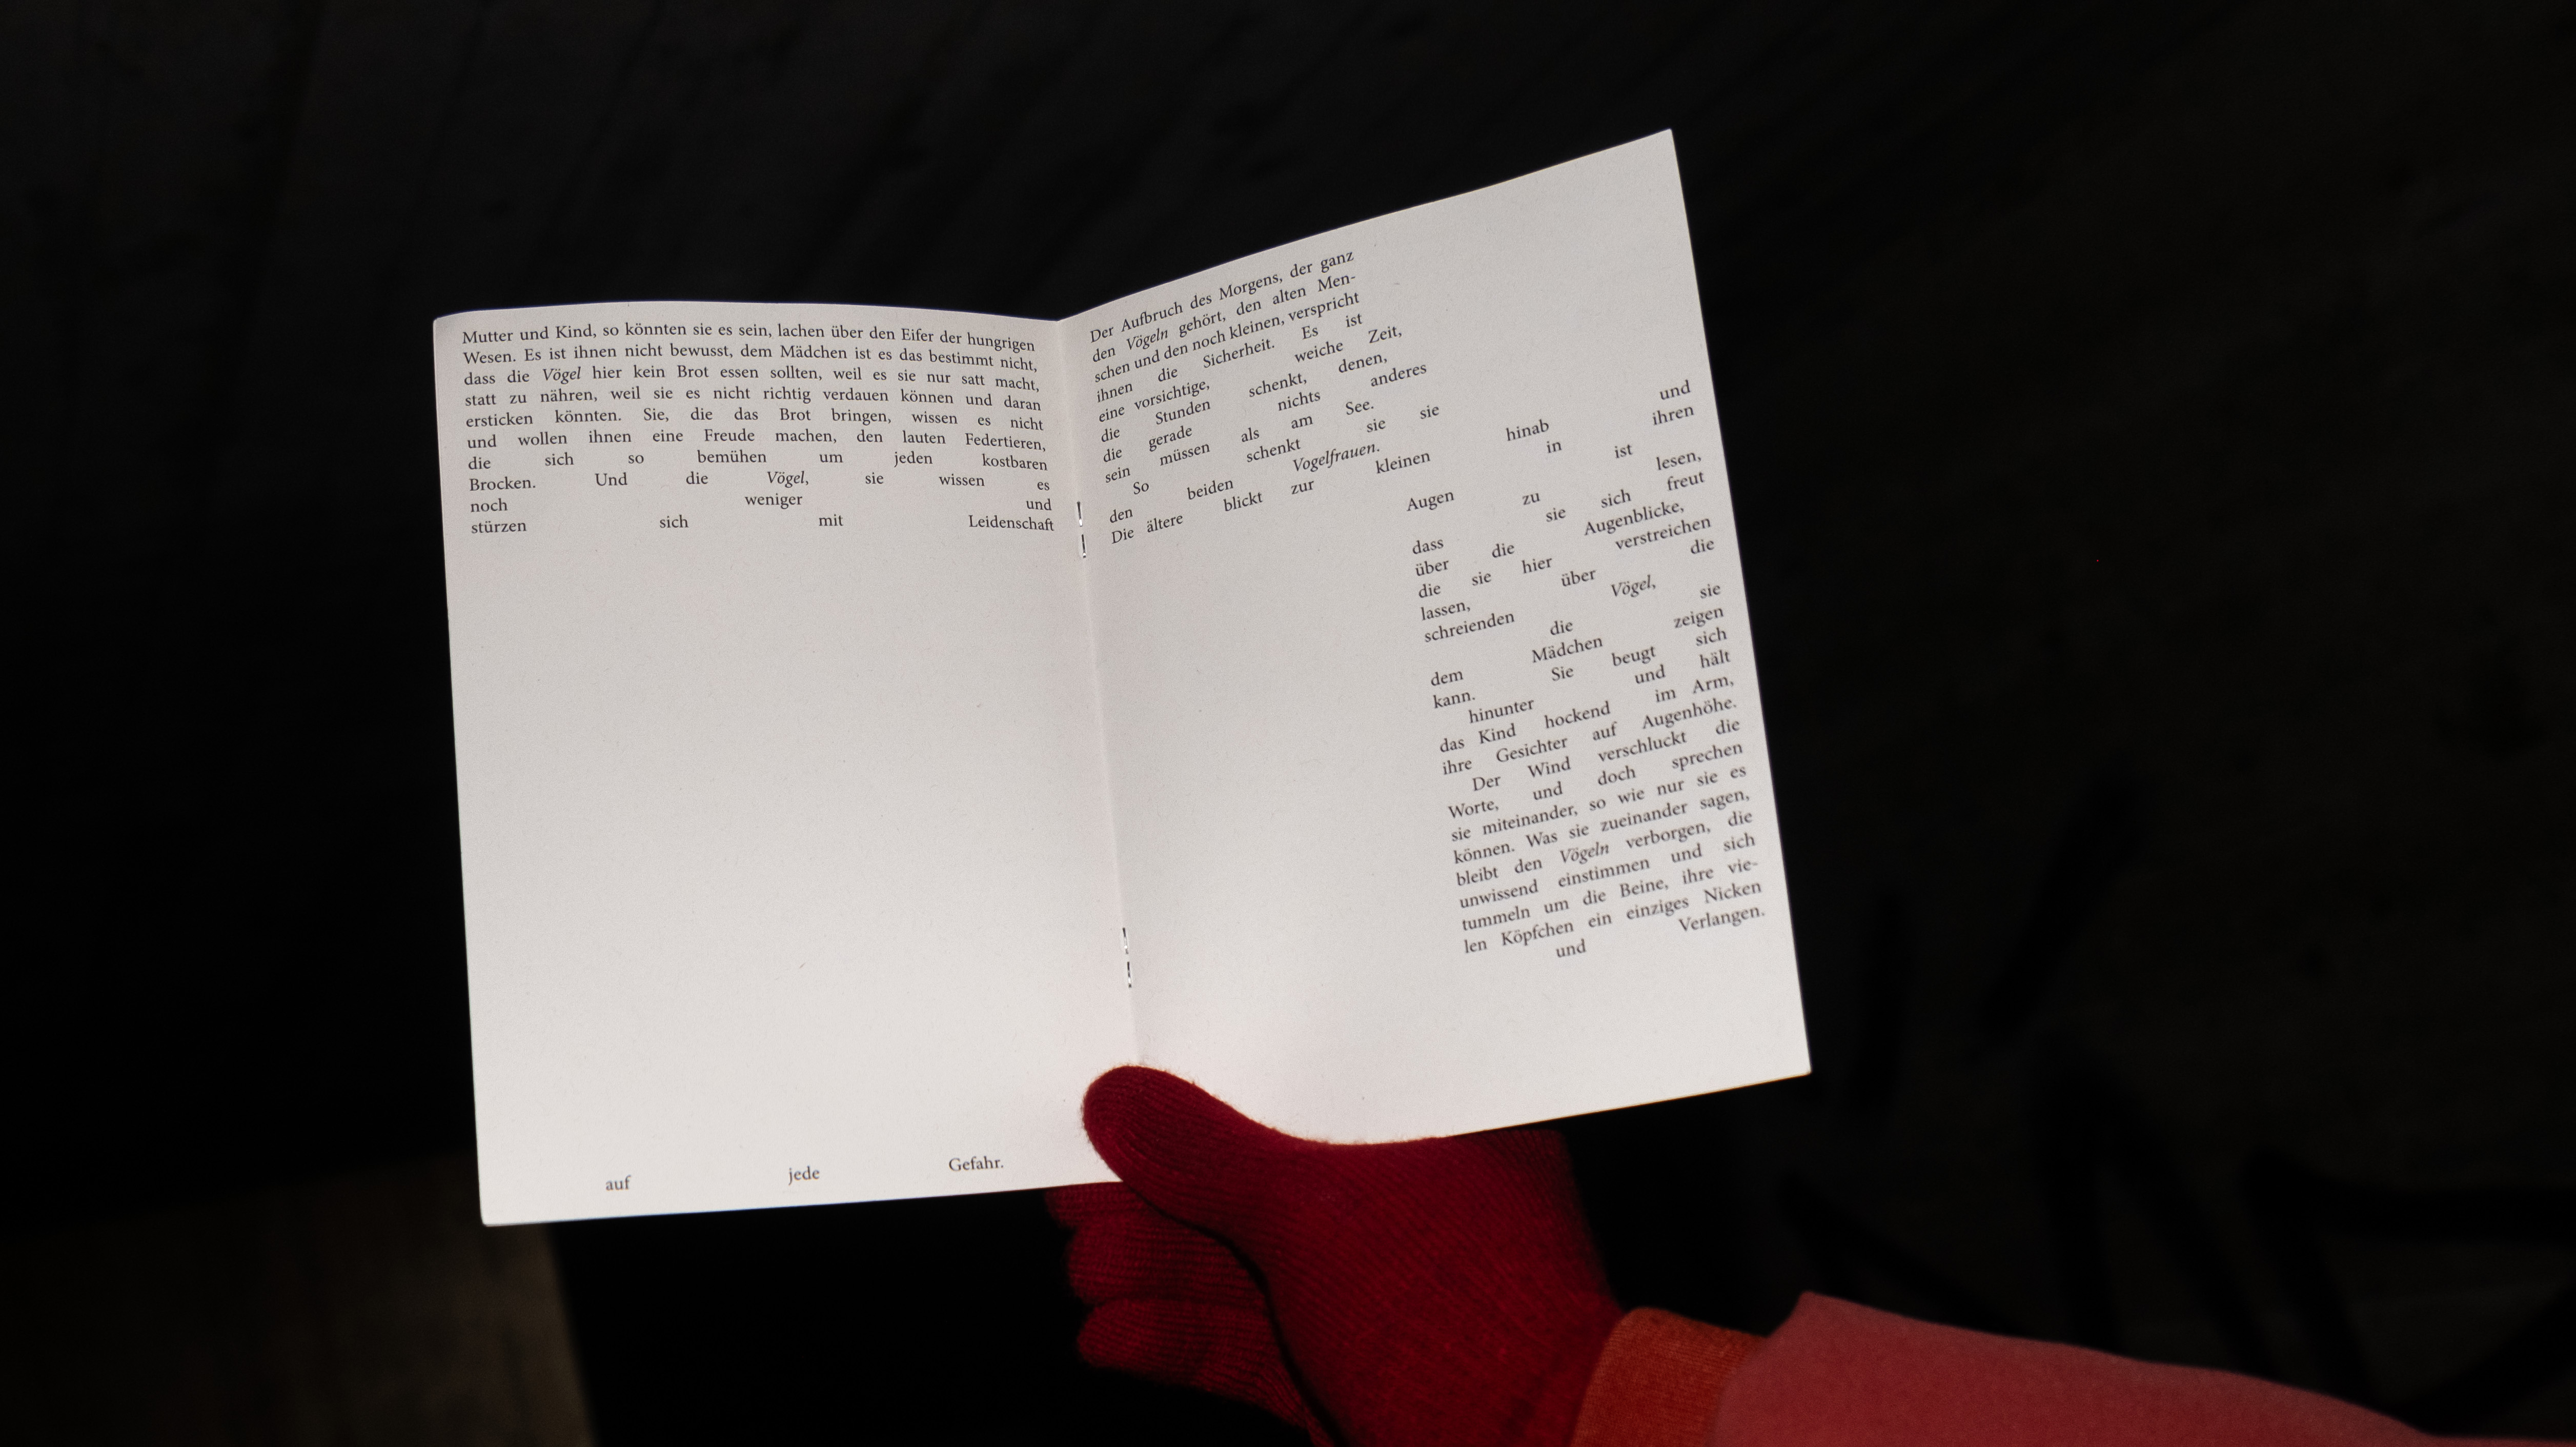 Mutter und Kind, so könnten sie es sein, lachen über den Eifer der hungrigen
Wesen. Es ist ihnen nicht bewusst, dem Mädchen ist es das bestimmt nicht,
dass die Vögel hier kein Brot essen sollten, weil es sie nur satt macht,
statt zu nähren, weil sie es nicht richtig verdauen können und daran
ersticken könnten. Sie, die das Brot bringen, wissen es nicht
und wollen ihnen eine Freude machen, den lauten Federtieren,
die sich so bemühen um jeden kostbaren
Brocken. Und die Vögel, sie wissen es
noch weniger und
stürzen sich mit Leidenschaft
auf jede Gefahr.
Der Aufbruch des Morgens, der ganz
den Vögeln gehört, den alten Men-
schen und den noch kleinen, verspricht
ihnen die Sicherheit. Es ist
eine vorsichtige, weiche Zeit,
die Stunden schenkt, denen,
die gerade nichts anderes
sein müssen als am See.
So schenkt sie sie
den beiden Vogelfrauen.
Die ältere blickt zur kleinen hinab und
in ihren
Augen ist
zu lesen,
dass sie sich freut
über die Augenblicke,
die sie hier verstreichen
lassen, über die
schreienden Vögel,
die sie
dem Mädchen zeigen
kann. Sie beugt sich
hinunter und hält
das Kind hockend im Arm,
ihre Gesichter auf Augenhöhe.
Der Wind verschluckt die
Worte, und doch sprechen
sie miteinander, so wie nur sie es
können. Was sie zueinander sagen,
bleibt den Vögeln verborgen, die
unwissend einstimmen und sich
tummeln um die Beine, ihre vie-
len Köpfchen ein einziges Nicken
und Verlangen.